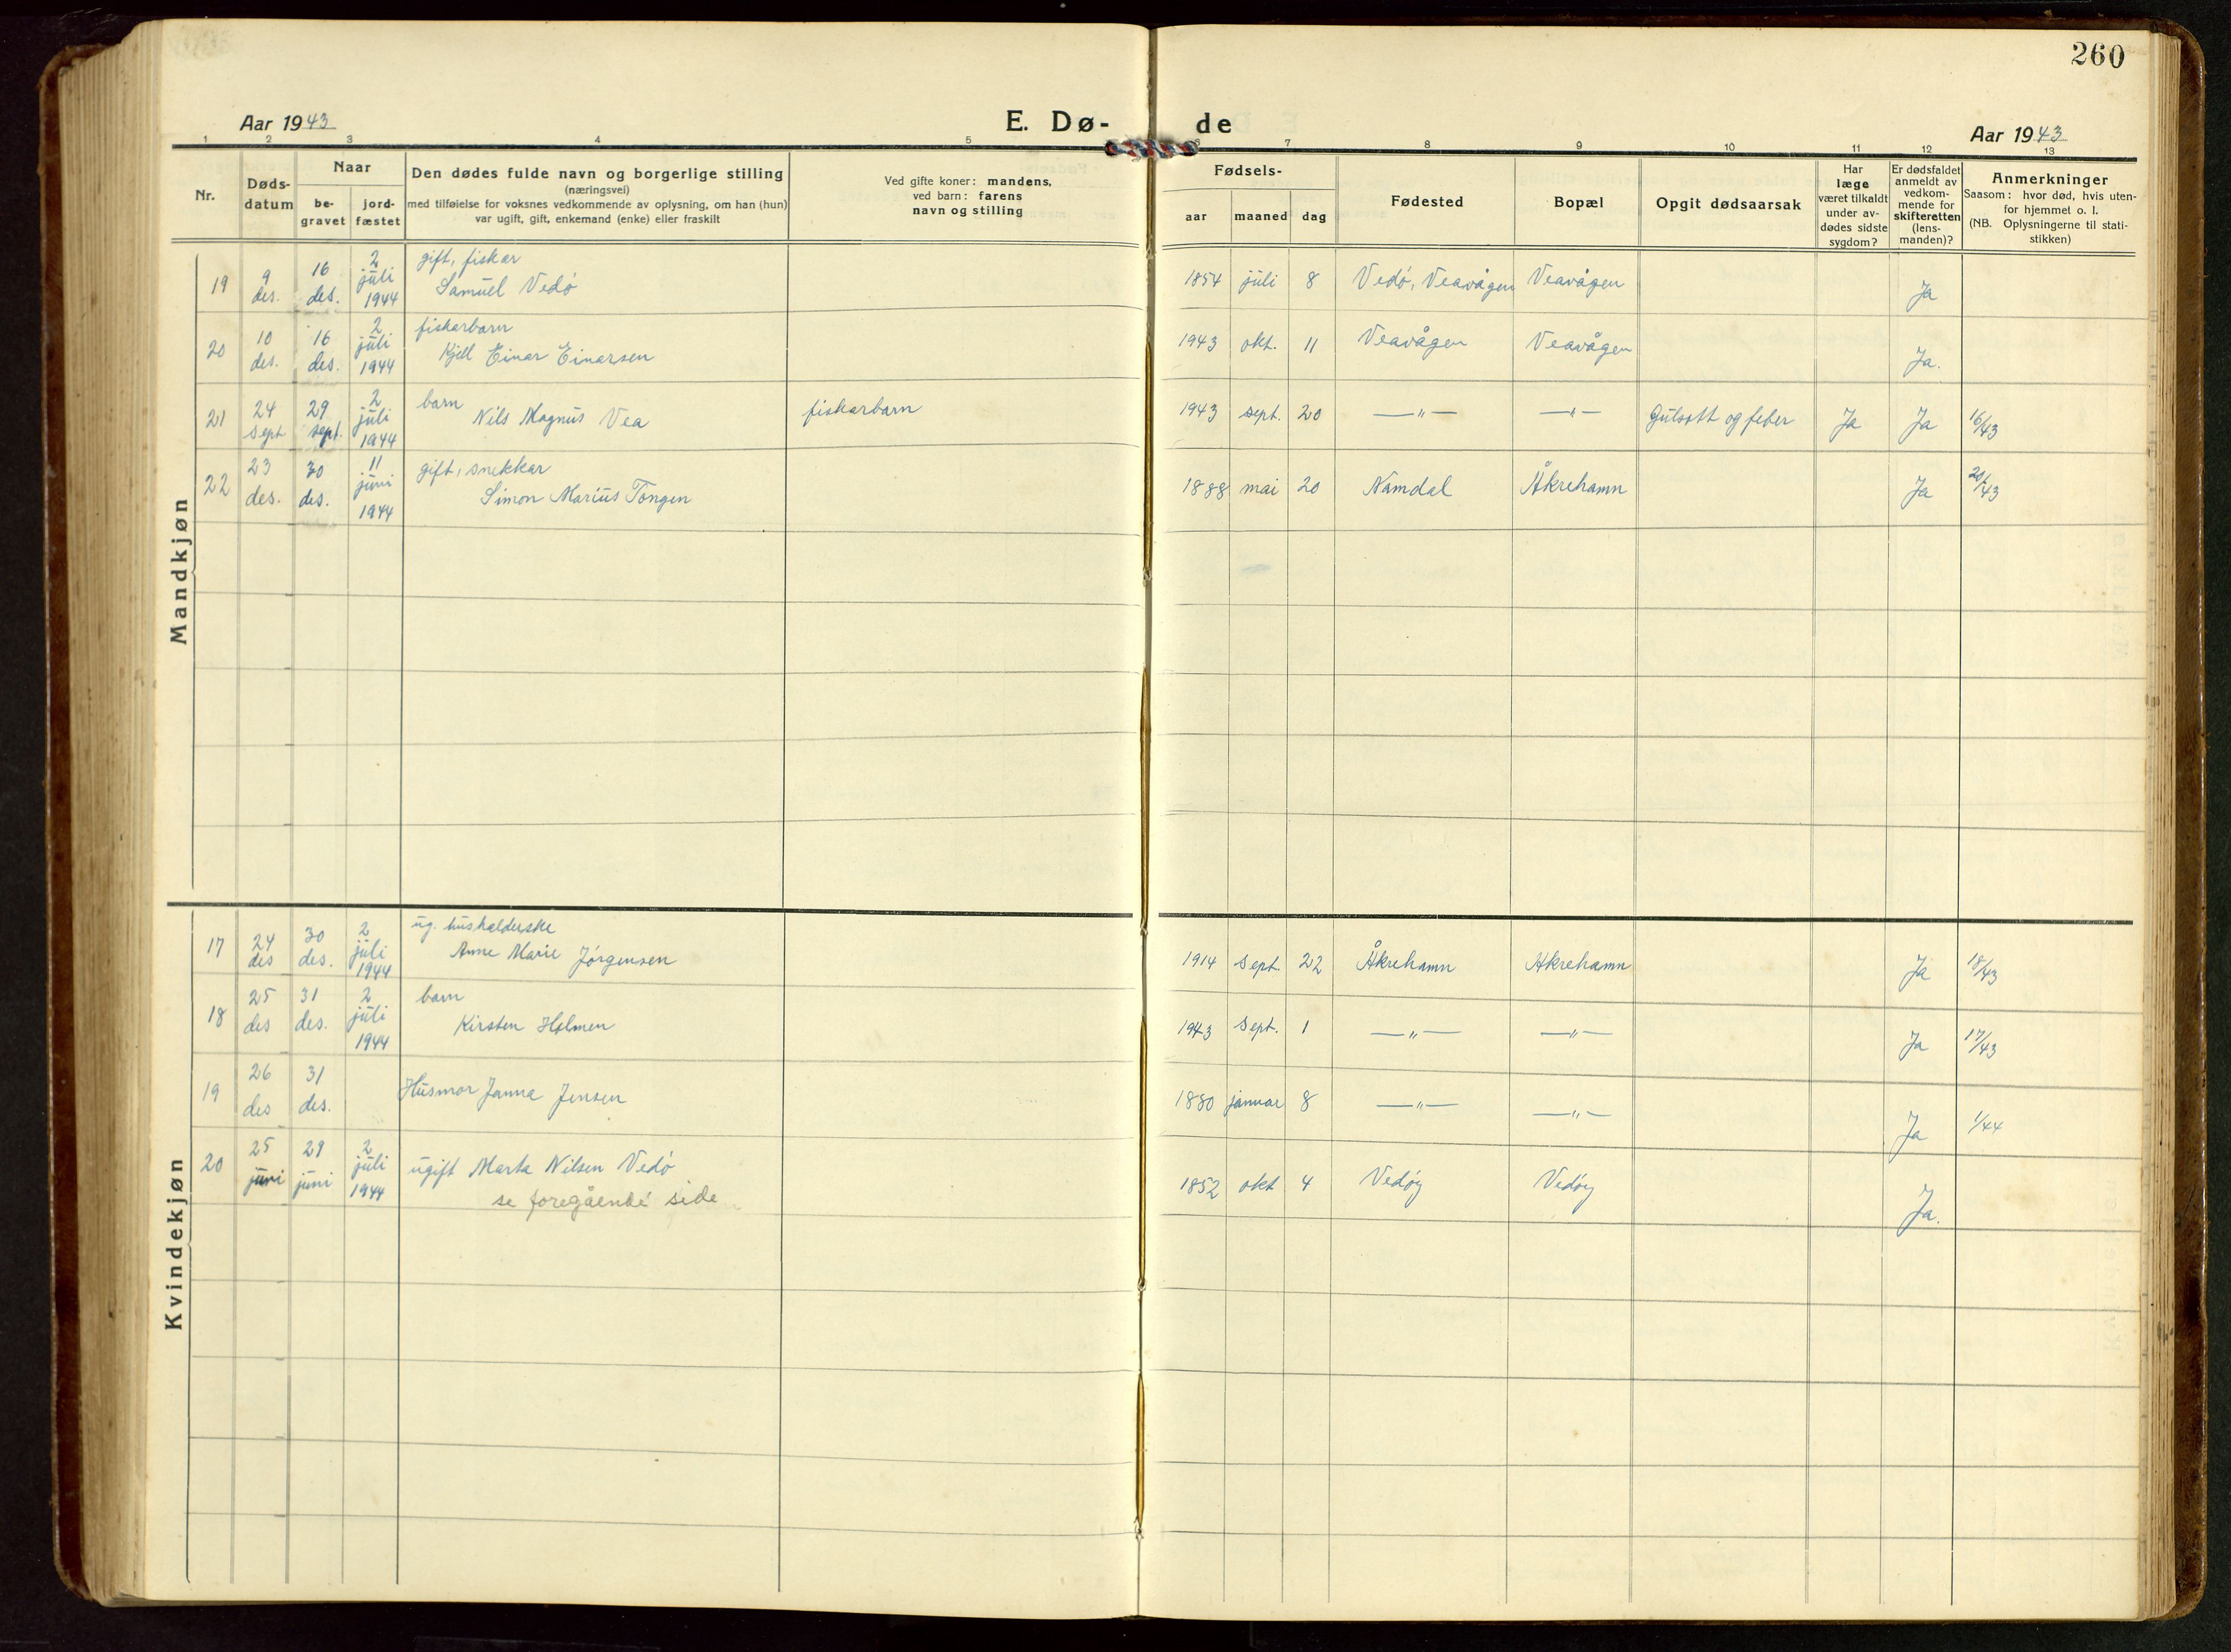 260
Aar 1943
E. Dø-
de
Aar 1943
1 2 3 4 5 6 7 8 9 10 11 12 13
Nr.
Døds-
datum
Naar
be-
gravet
jord-
fæstet
Den dødes fulde navn og borgerlige stilling
(næringsvei)
med tilføielse for voksnes vedkommende av oplysning, om han (hun)
var ugift, gift, enkemand (enke) eller fraskilt
Ved gifte koner: mandens,
ved barn: farens
navn og stilling
Fødsels-
aar
maaned
dag
Fødested
Bopæl
Opgit dødsaarsak
Har
læge
været tilkaldt
under av-
dødes sidste
sygdom?
Er dødsfaldet
anmeldt av
vedkom-
mende for
skifteretten
(lens-
manden)?
Anmerkninger
Saasom: hvor død, hvis uten-
for hjemmet o. l.
(NB. Oplysningerne til stati-
stikken)
Mandkjøn
19 9 des. 16 des. 2 juli 1944 gift, fiskar
Samuel Vedø 1854 juli 8 Vedø, Veavågen Veavågen Ja
20 10 des. 16 des. 2 juli 1944 fiskarbarn
Kjell Einar Einarsen 1943 okt. 11 Veavågen Veavågen Ja.
21 24 sept 29 sept. 2 juli 1944 barn
Nils Magnus Vea fiskarbarn 1943 sept. 20 —"— —"— Gulsott og feber Ja Ja 16/43
22 23 des. 30 des. 11 juni 1944 gift, snekkar
Simon Marius Tongen 1888 mai 20 Namdal Åkrehamn Ja 20/43
Kvindekjøn
17 24 des 30 des. 2 juli 1944 ug. hushalderske
Anne Marie Jørgensen 1914 sept. 22 Åkrehamn Åkrehamn Ja 18/43
18 25 des 31 des. 2 juli 1944 barn
Kirsten Holmen 1943 sept. 1 —"— —"— Ja 17/43
19 26 des 31 des. Husmor Janna Jensen 1880 januar 8 —"— —"— Ja 1/44
20 25 juni 29 juni 2 juli 1944 ugift Marta Nilsen Vedø 1852 okt 4 Vedøy Vedøy Ja.
se foregående side